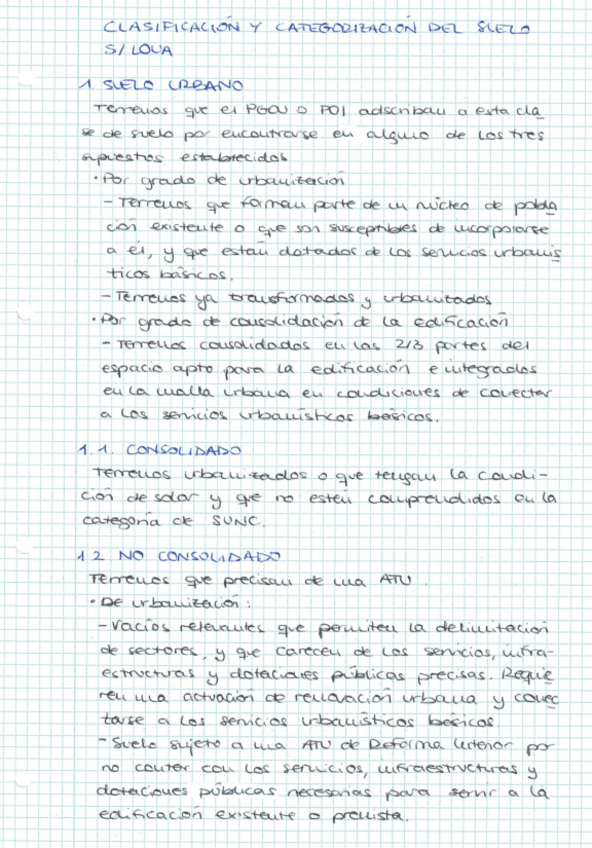 CLASIFICACIÓN Y CATEGORIZACIÓN DEL SUELO
S/ LOUA
1 SUELO URBANO
Terrenos que el PGOU o POI adscriban a esta cla
se de suelo por encontrarse en alguno de los tres
supuestos establecidos
· Por grado de urbanización
- Terrenos que forman parte de un núcleo de pobla
ción existente o que son susceptibles de incorporarse
a él, y que están dotados de los servicios urbanís
ticos básicos.
- Terrenos ya transformados y urbanizados
· Por grado de consolidación de la edificación
- Terrenos consolidados en las 2/3 partes del
espacio apto para la edificación e integrados
en la malla urbana en condiciones de conectar
a los servicios urbanísticos básicos.
1.1. CONSOLIDADO
Terrenos urbanizados o que tengan la condi-
ción de solar y que no estén comprendidos en la
categoría de SUNC.
1.2 NO CONSOLIDADO
Terrenos que precisan de una ATU.
· De urbanización:
- Vacíos relevantes que permiten la delimitación
de sectores, y que carecen de los servicios, infra-
estructuras y dotaciones públicas precisas. Requie
ren una actuación de renovación urbana y conec
tarse a los servicios urbanísticos básicos
- Suelo sujeto a una ATU de Reforma Interior por
no contar con los servicios, infraestructuras y
dotaciones públicas necesarias para servir a la
edificación existente o prevista.